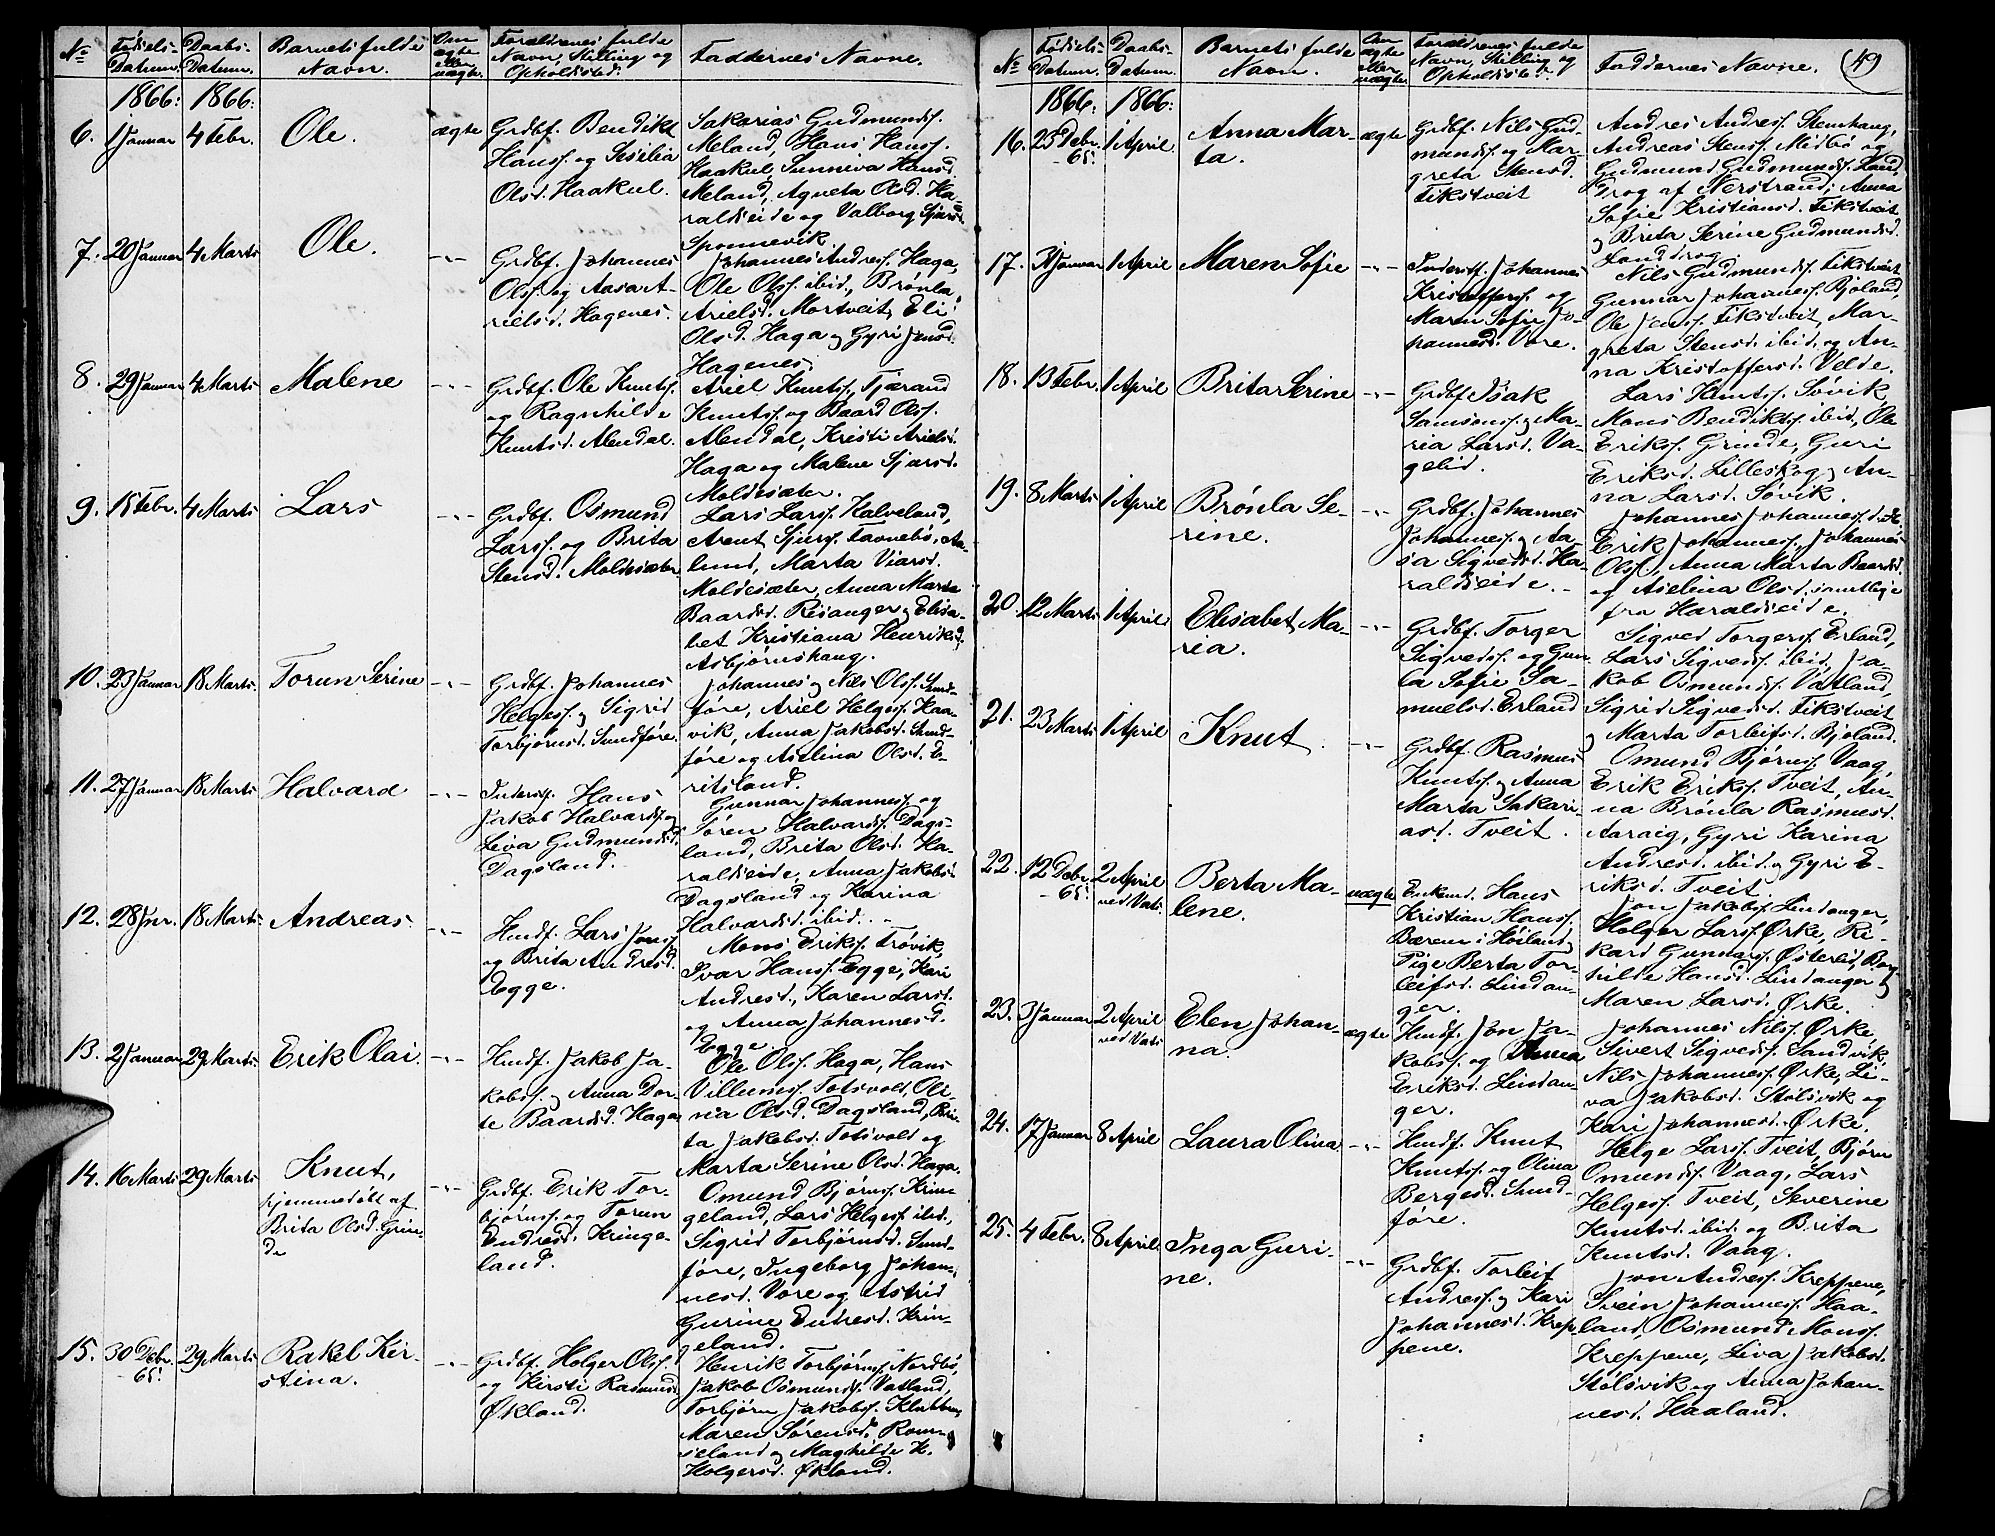 No Fødsels-Datum. Daabs-Datum. Barnets fulde Navn. Om ægte eller uægte. Forældrenes fulde Navn, Stilling og Opholdssted. Faddernes Navne.
1866: 1866:
6. 1 Januar 4 Febr. Ole. ægte
Grdbf. Bendikt
Hansf. og Sesilia
Olsd. Haakul.
Sakarias Gudmundsf.
Meland, Hans Hansf.
Haakul, Sunniva Hansd.
Meland, Agneta Olsd. Ha-
raldseide og Valborg Sjursd.
Sponnevik
7. 20 Januar 4 Marts Ole. -"-
Grdbf. Johannes
Olsf. og Aasa A-
rielsd. Hagenes.
Johannes Andresf. Haga,
Ole Olsf. ibid., Brønla
Arielsd. Mortveit, Eli
Olsd. Haga og Gyri Jensd.
Hagenes
8. 29 Januar 4 Marts Malene -"-
Grdbf. Ole Knutsf.
og Ragnhilde
Knutsd. Alendal.
Ariel Knutsf., Tjærand
Knutsf. og Baard Olsf.
Alendal, Kristi Arielsd.
Haga og Malene Sjursd.
Moldesæter.
9. 15 Febr. 4 Marts Lars -"-
Grdbf. Osmund
Larsf. og Brita
Stensd. Moldesæter
Lars Larsf. Halveland,
Arent Sjursf. Favnebø, Aa-
lund, Marta Viarsd.
Moldesæter, Anna Marta
Baardsd. Risanger og Elisa-
bet Kristiana Henriksd.
Asbjørnshaug.
10. 23 Januar 18 Marts. Torun Serine -"-
Grdbf. Johannes
Helgesf. og Sigrid
Torbjørnsd. Sundføre.
Johannes og Nils Olsf. Sund-
føre, Ariel Helgesf. Haa-
vik, Anna Jakobsd. Sund-
føre og Aselina Olsd. E-
ritsland.
11. 27 Januar 18 Marts Halvard -"-
Inderstf. Hans
Jakob Halvardsf. og
Liva Gudmundsd.
Dagsland.
Gunnar Johannesf. og
Søren Halvardsf. Dags-
land, Brita Olsd. Ha-
raldseide, Anna Jakobsd.
Dagsland og Karina
Halvardsd. ibid.
12. 28 Jnr. 18 Marts Andreas -"-
Husf. Lars Jonsf.
og Brita Andresd.
Egge.
Mons Eriksf. Frøvik,
Ivar Hansf. Egge, Kari
Andresd., Karen Larsd.
og Anna Johannesd.
Egge.
13. 2 Januar 29 Marts Erik Olai. -"-
Husf. Jakob Ja-
kobsf. og Anna Dor-
te Baardsd. Haga
Ole Olsf. Haga, Hans
Villumsf. Totsvolt, Oli-
na Olsd. Dagsland, Bri-
ta Jakobsd. Totsvolt og
Marta Serine Olsd. Haga.
14. 16 Marts 29 Marts Knut,
hjemmedøbt af
Brita Olsd. Grin-
de
-"-
Grdbf. Erik Tor-
bjørnsf. og Torun
Endresd. Kringe-
land.
Omund Bjørnsf. Krin-
geland, Lars Helgesf. ibid.,
Sigrid Torbjørnsd. Sund-
føre, Ingeborg Johan-
nesd. Vore og Astrid
Gurine Endresd. Krin-
geland.
15. 30 Debr. -65. 29 Marts Rakel Kir-
stina.
-"-
Grdbf. Holger Olsf.
og Kirsti Rasmusd.
Økland.
Henrik Torbjørnsf. Nordbø,
Jakob Osmundsf. Vatland,
Torbjørn Jakobsf. Klubben,
Maren Sørensd. Røm-
seland og Maghilde H.
Holgersd. Økland.
49
No Fødsels-Datum. Daabs-Datum. Barnets fulde Navn. Om ægte eller uægte Forældrenes fulde Navn, Stilling og Opholdssted. Faddernes Navne.
1866: 1866:
16. 25 Debr. -65. 1 April Anna Mar-
ta.
ægte
Grdbf. Nils Gud-
mundsf. og Mar-
greta Stensd.
Fikstveit
Andres Andresf. Stenhaug,
Andreas Stensf. Midbø og
Gudmund Gudmundsf. Land-
drog af Nerstrand, Anna
Sofie Kristiansd. Fikstveit
og Brita Serine Gudmundsd.
Landdrog.
17. 31 Januar 1 April Maren Sofie -"-
Inderstf. Johannes
Kristoffersf. og
Maren Sofie Jo-
hannesd. Vore.
Nils Gudmundsf. Fikstveit
Gunnar Johannesf. Bjoland,
Ole Jensf. Fikstveit, Mar-
greta Stensd. ibid. og An-
na Kristoffersd. Velde.
18. 13 Febr. 1 April Brita Serine -"-
Grdbf. Isak
Samsonsf. og Ma-
ria Larsd. Va-
gelid.
Lars Knutsf. Søvik
Mons Bendiktsf. ibid., Ole
Eriksf. Grinde, Guri
Eriksd. Lilleskog og An-
na Larsd. Søvik.
19. 8 Marts 1 April Brønla Se-
rine.
-"-
Grdbf. Johannes
Johannesf. og Aa-
sa Sigvedsd. Ha-
raldseide.
Johannes Johannesf.
Erik Johannesf., Johannes
Olsf., Anna Marta Baardsd.
og Aselina Olsd. samtlige
fra Haraldseide.
20. 12 Marts 1 April Elisabet Ma-
ria.
-"-
Grdbf. Torger
Sigvedsf. og Gun-
la Sofie Sa-
muelsd. Erland
Sigved Torgersf. Erland,
Lars Sigvedsf. ibid., Ja-
kob Osmundsf. Vatland,
Sigrid Sigvedsd. Fikstveit
og Marta Torleifsd. Bjoland.
21. 23 Marts 1 April Knut. -"-
Grdbf. Rasmus
Knutsf. og Anna
Marta Sakari-
asd. Tveit.
Omund Bjørnsf. Vaag,
Erik Eriksf. Tveit, An-
na Brønla Rasmusd.
Aaraig, Gyri Karina
Andresd. ibid. og Gyri E-
riksd. Tveit.
22. 12 Debr. -65. 2 April ved Vats. Berta Ma-
lene.
uægte
Enkem. Hans
Kristian Hansf.
Børen i Høiland og
Pige Berta Tor-
leifsd. Lindan-
ger.
Jon Jakobsf. Lindanger,
Holger Larsf. Ørke, Ri-
kard Gunnarsf. Østerlid, Borg-
hilde Hansd. Lindanger og
Maren Larsd. Ørke.
23. 3 Januar 2 April ved Vats Elen Johan-
na.
ægte
Husf. Jon Ja-
kobsf. og Anna
Eriksd. Lindan-
ger.
Johannes Nilsf. Ørke,
Sivert Sigvedsf. Sandvik,
Nils Johannesf. Ørke, Li-
va Jakobsd. Stølsvik og
Kari Johannesd. Ørke.
24. 17 Januar 8 April Laura Olina -"-
Husf. Knut
Knutsf. og Olina
Bergesd. Sund-
føre.
Helge Larsf. Tveit, Bjørn
Omundsf. Vaag, Lars
Helgesf. Tveit, Severine
Knutsd. ibid. og Brita
Knutsd. Vaag.
25. 4 Febr. 8 April. Inga Guri-
ne.
-"-
Grdbf. Torleif
Andresf. og Kari
Johannesd. Krep-
pene.
Jon Andresf. Kreppene,
Svein Johannesf. Haa-
land, Osmund Monsf.
Kreppene, Liva Jakobsd.
Stølsvik og Anna Johan-
nesd. Haaland.